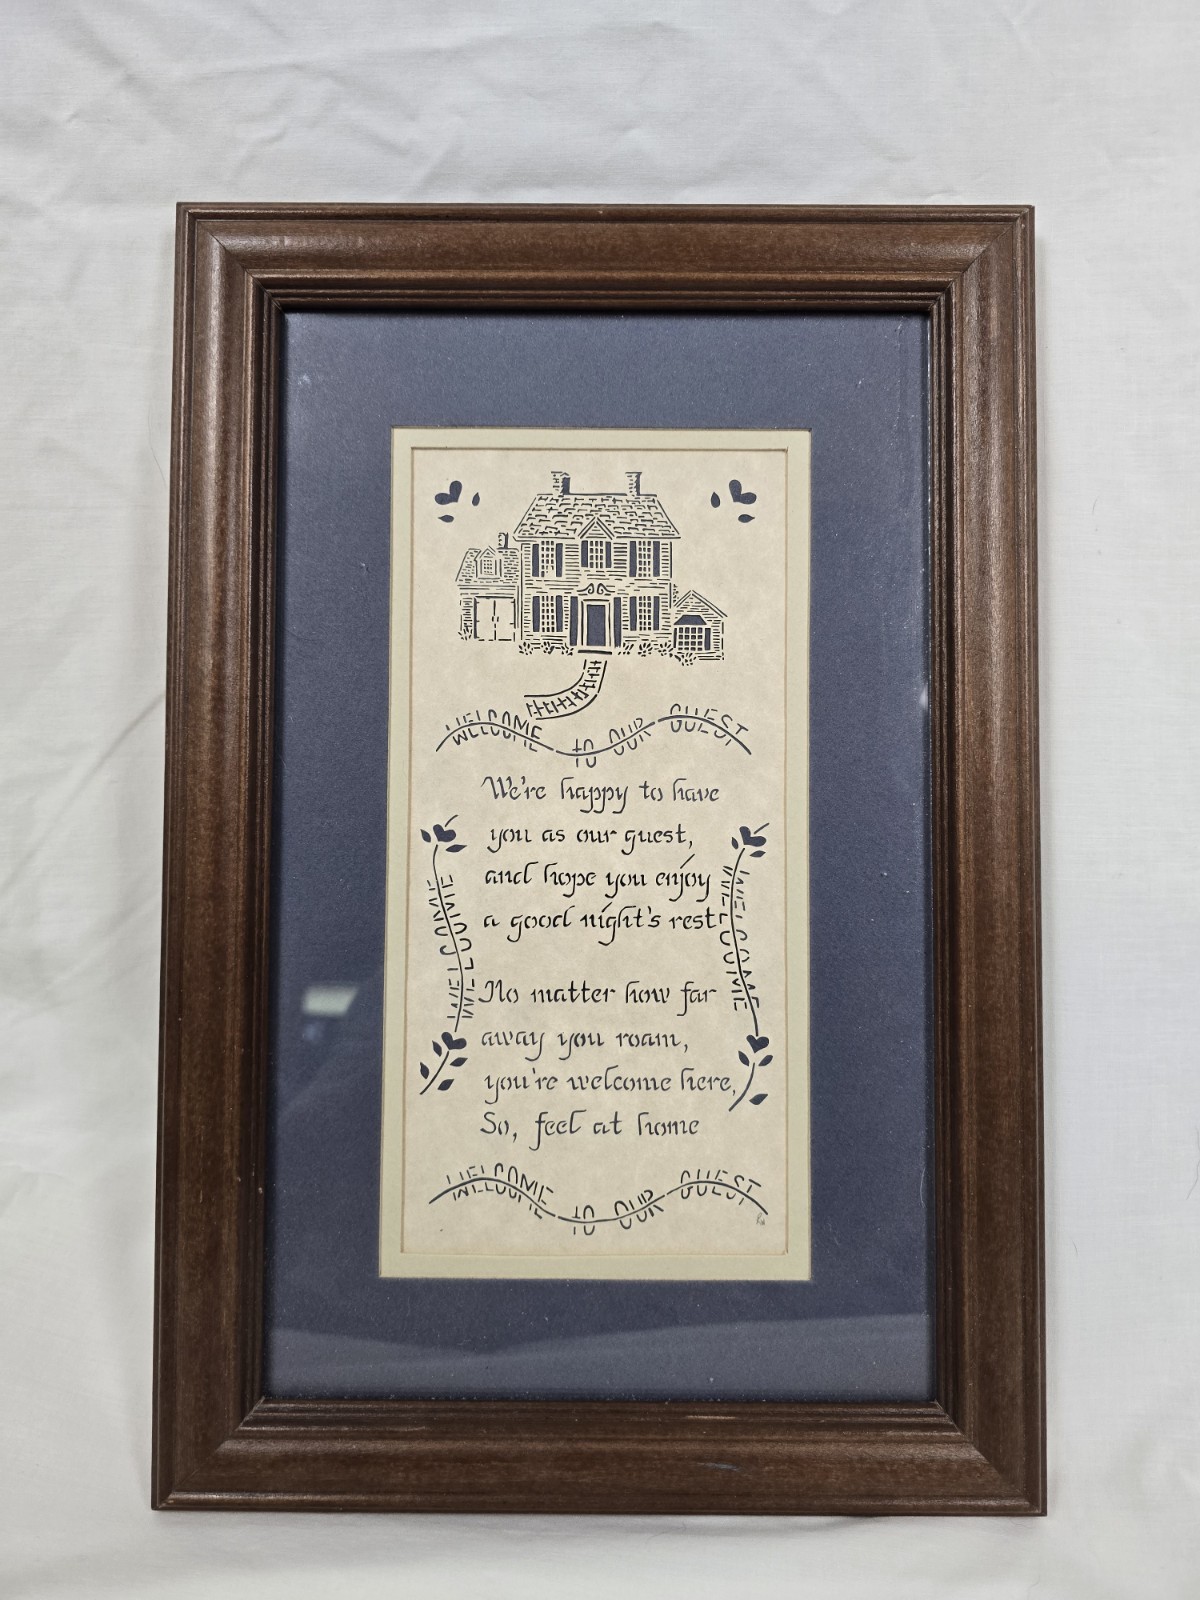 WELCOME TO OUR GUEST
We're happy to have
you as our guest,
and hope you enjoy
a good night's rest
WELCOME
WELCOME
No matter how far
away you roam,
you're welcome here,
So, feel at home
WELCOME TO OUR GUEST